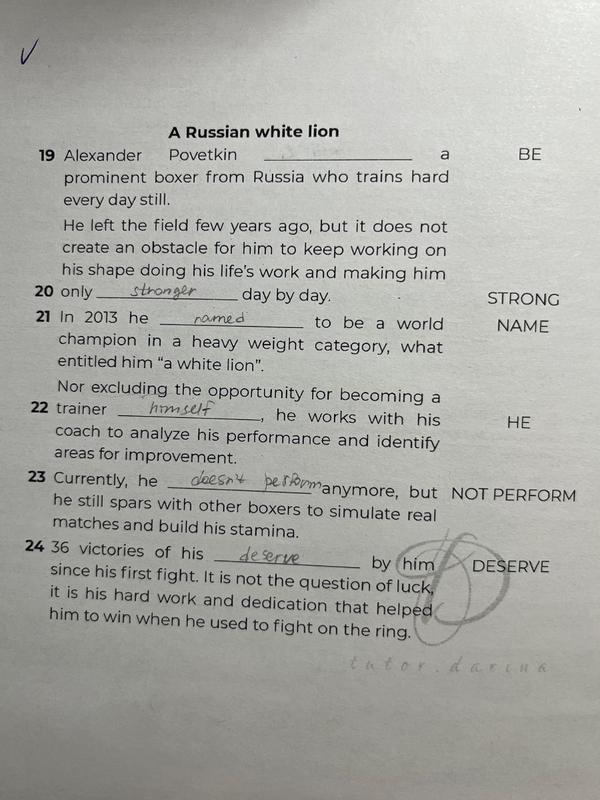 A Russian white lion
19 Alexander Povetkin ____________ a BE
prominent boxer from Russia who trains hard
every day still.
He left the field few years ago, but it does not
create an obstacle for him to keep working on
his shape doing his life's work and making him
20 only stronger day by day. STRONG
21 In 2013 he named to be a world NAME
champion in a heavy weight category, what
entitled him "a white lion".
Nor excluding the opportunity for becoming a
22 trainer himself, he works with his HE
coach to analyze his performance and identify
areas for improvement.
23 Currently, he doesn't perform anymore, but NOT PERFORM
he still spars with other boxers to simulate real
matches and build his stamina.
24 36 victories of his deserve by him DESERVE
since his first fight. It is not the question of luck,
it is his hard work and dedication that helped
him to win when he used to fight on the ring.
tutor.darina